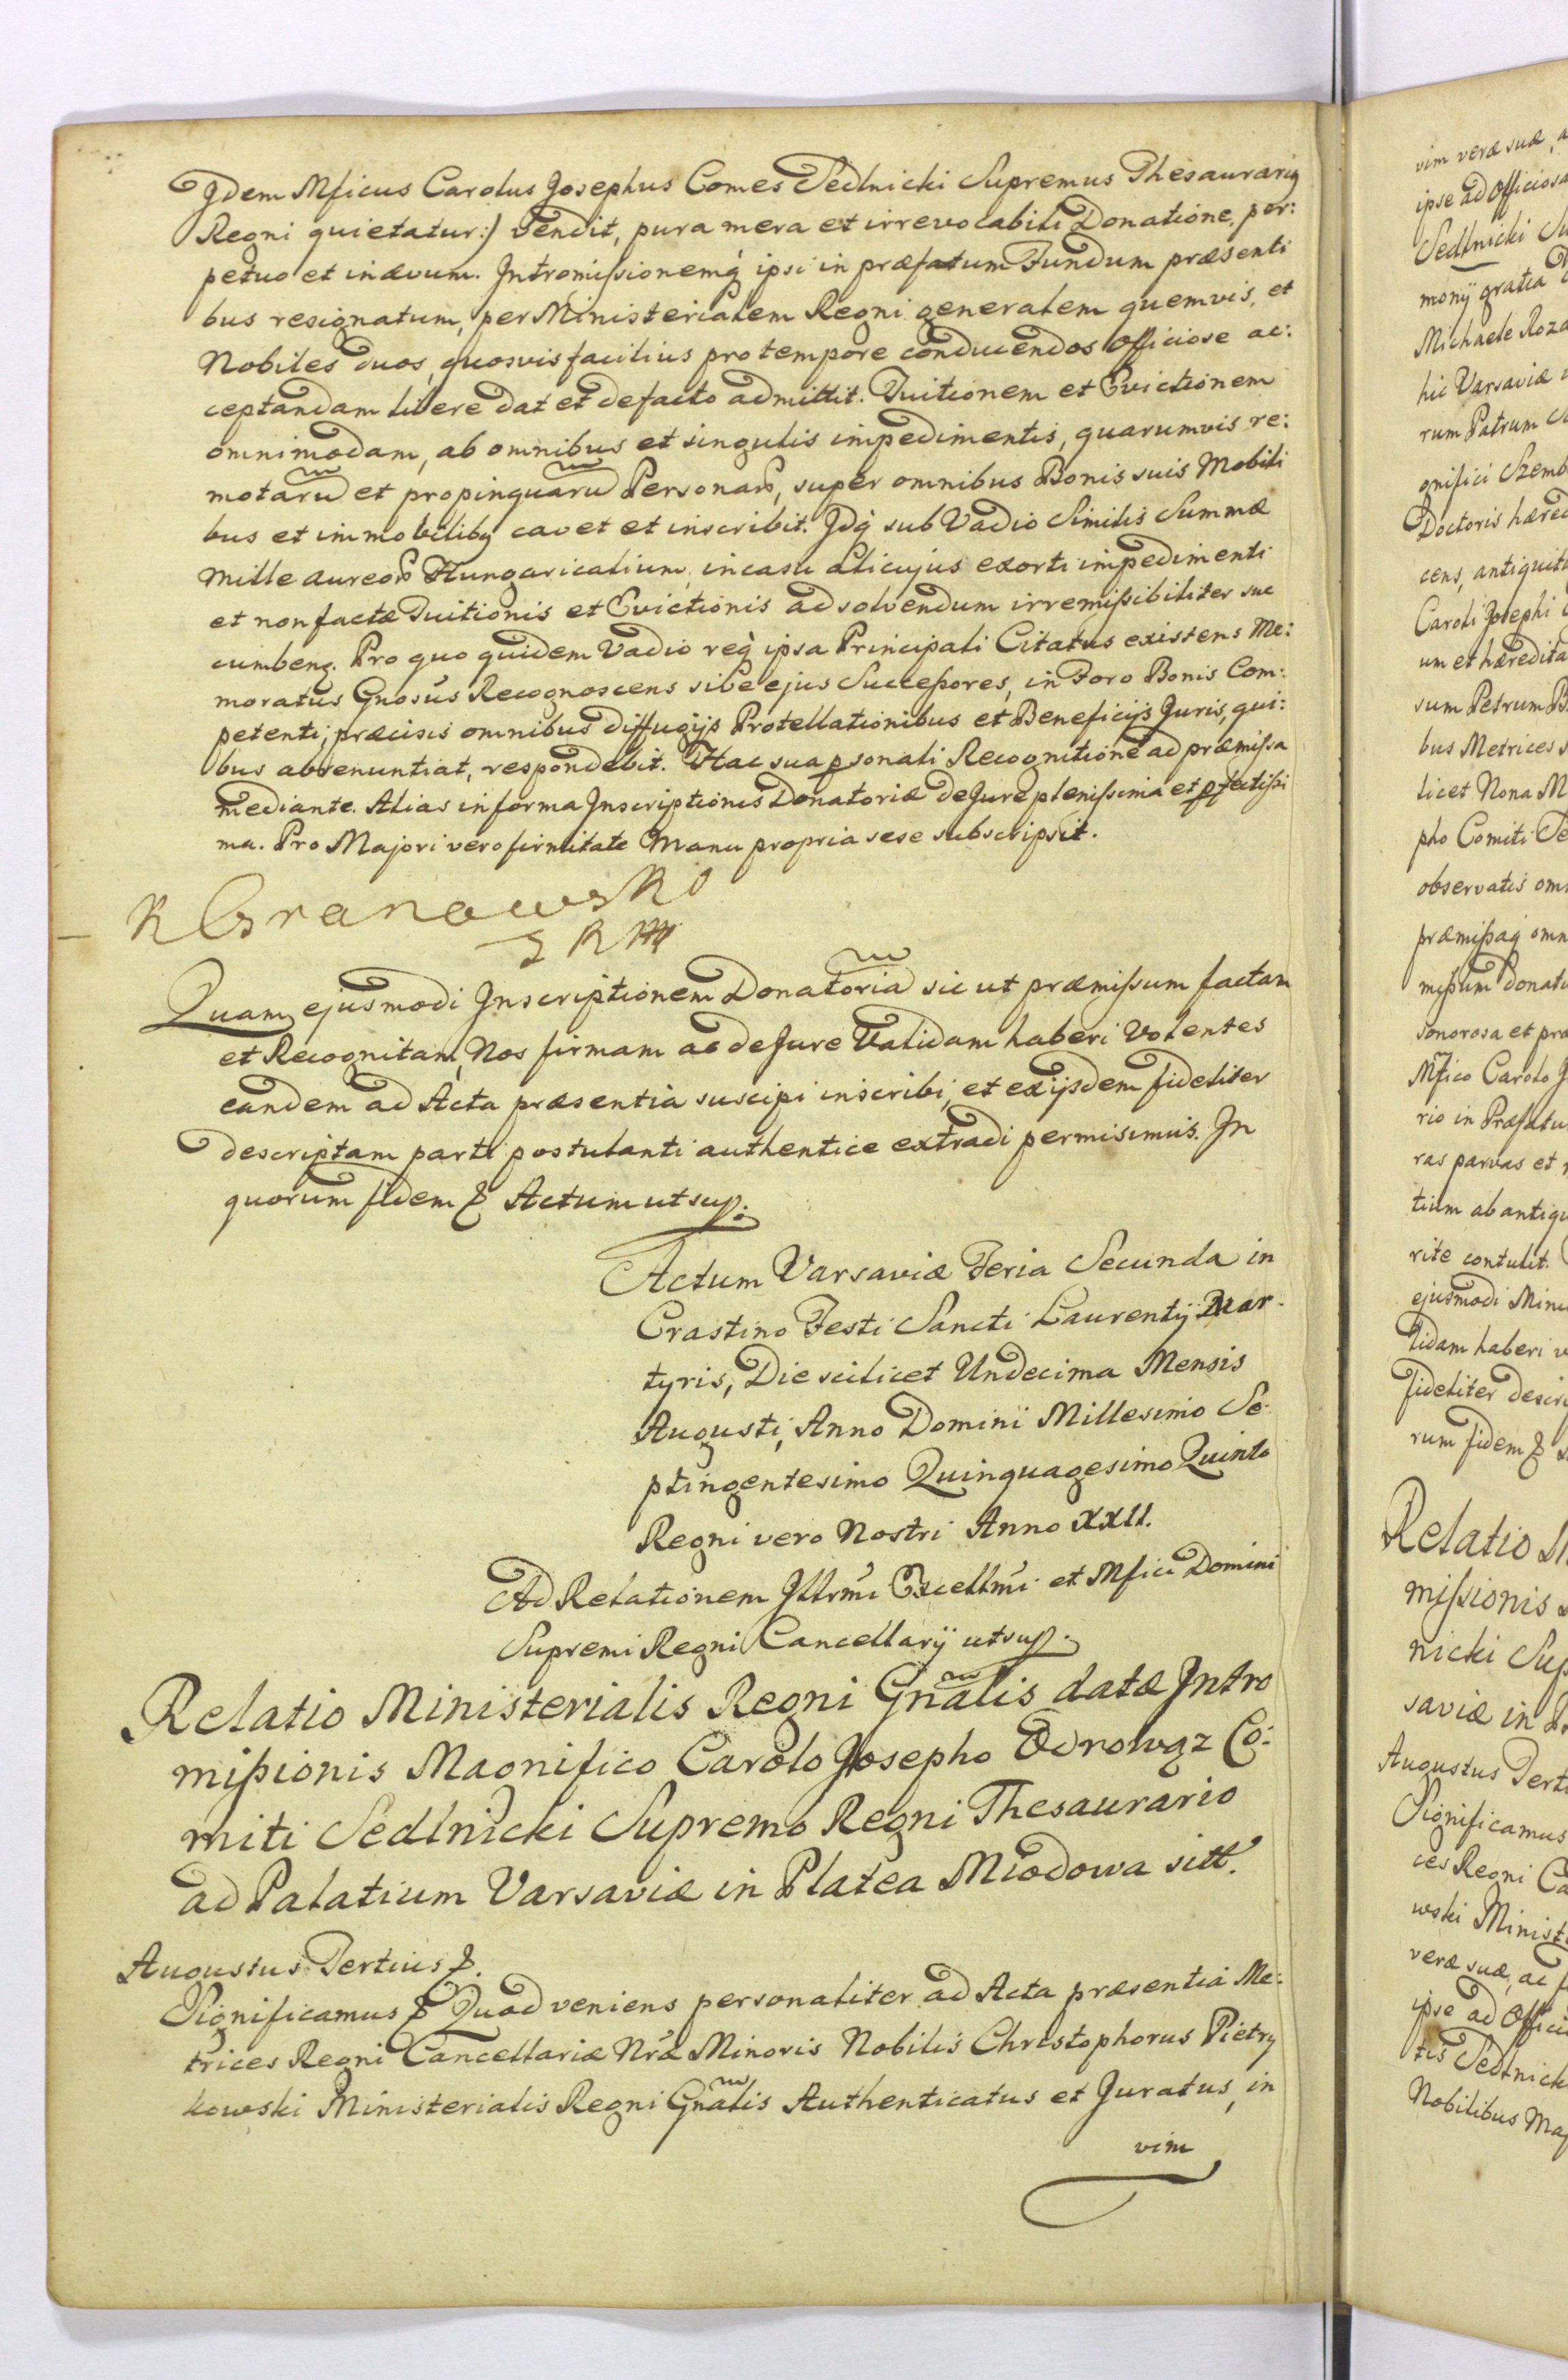 Jdem Mficus Carolus Josephus Comes Sedlnicki Supremus Thesaurarig
Regni quietatur:) vendit, pura mera et irrevocabili Donatione, per:
petuo et inævum. Intromissionemq́ ipsi in præfatum Fundum præsenti
bus resignatum, per Ministerialem Regni generalem quemvis, et
Nobiles duos, quosvis facilius pro tempore conducendos officiose ac:
ceptandam libere dat et defacto admittit. Tuitionem et Evictionem
omnimodam, ab omnibus et singulis impedimentis, quarumvis re:
motarũ et propinquarũ Personarū, super omnibus Bonis suis Mobili
bus et immobilibg cavet et inscribit. Jdq́ sub Vadio Similis Summæ
Mille aureorū Hungaricalium, in casu alicujus exorti impedimenti
et non factæ Tuitionis et Evictionis ad solvendum irremissibiliter suc
cumbeng. Pro quo quidem Vadio req̀ ipsa Principali Citatus existens Me:
moratus Gnosús Recognoscens sive ejus Successores, in Foro Bonis Com:
petenti, præcisis omnibus Diffugijs Protellationibus et Beneficijs Juris, qui:
bus abrenuntiat, respondebit. Hac sua psonali Recognitione ad præmissa
mediante. Alias in forma Inscriptionis Donatoriæ de Jure plenissima et pfectissi
ma. Pro Majori vero firmitate Manu propria sese subscripsit.
K Granowski
Quam ejusmodi Inscriptionem Donatoriã sic ut præmissum factam
et Recognitam, Nos firmam ac de Jure Validam haberi Volentes
eandem ad Acta præsentia suscipi inscribi, et exijsdem fideliter
descriptam parti postulanti authentice extradi permisimus. In
quorum fidem & Actum ut sup.
Actum Varsaviæ Feria Secunda in
Crastino Festi Sancti Laurentij Mar-
tyris, Die scilicet Undecima Mensis
Augusti, Anno Domini Millesimo Se-
ptingentesimo Quinquagesimo Quinto
Regni vero Nostri Anno XXII.
Ad Relationem Jllrmi Excellmi et Mfici Domini
Supremi Regni Cancellarij ut sup.
Relatio Ministerialis Regni Gnãlis datæ Intro
missionis Magnifico Carolo Josepho Odrowąz Co:
miti Sedlnicki Supremo Regni Thesaurario
ad Palatium Varsaviæ in Platea Miodowa sitt.
Augustus Tertius &.
Significamus & Quod veniens personaliter ad Acta præsentia Me:
trices Regni Cancellariæ Nræ Minoris Nobilis Christophorus Pietry
kowski Ministerialis Regni Gnãlis Authenticatus et Juratus, in
vim
vim veræ suæ, a
ipse ad Officiosa
Sedlnicki Su
monij gratia
Michaele Roza
hic Varsaviæ
rum Patrum
gnifici Szemb
Doctoris hæred
cens, antiquit
Caroli Josephi
um et hæredita
sum Petrum
bus Metrices
licet Nona M
pho Comiti Se
observatis om
præmissaq́ omn
missum donat
sonorosa et præ
Mfico Carolo J
rio in Præfatu
ras parvas et
tium ab antiqu
rite contulit.
ejusmodi Mini
lidam haberi v
fideliter descri
rum fidem &
Relatio M
missionis
nicki Sup
saviæ in P
Augustus Terti
Significamus
ces Regni Ca
wski Minist
veræ suæ, ac f
ipse ad Offici
tis Sedlnick
Nobilibus Ma